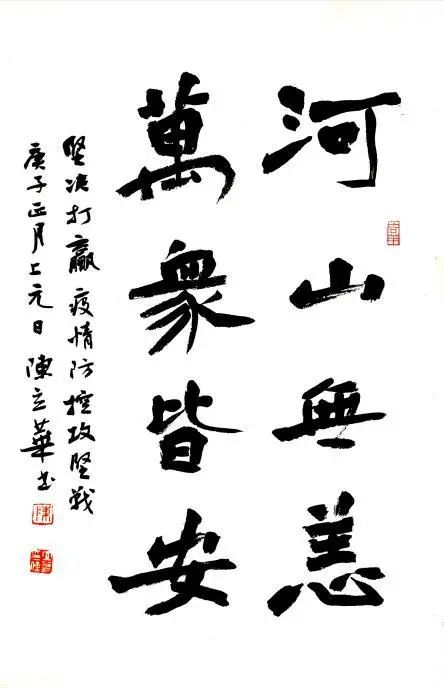 河山無恙
萬衆皆安
坚决打贏疫情防控攻坚战
庚子正月上元日陳立華书